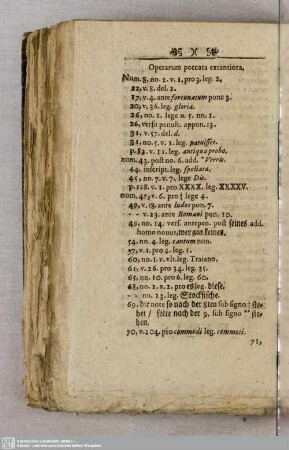 Operarum peccata extantiora,
Num. 8, no. 2. v. 1, pro 3. leg. 2,
12, v. 8. del. 2.
17, v. 4. ante fortunatum pone 3.
20, v. 36. leg. gloria.
26, no. 1. lege n. 5. no. 1.
26, versu penult. appon. 13.
31, v. 57. del. d.
31, no. 5. v. 1. leg. patuisset.
p. 53. v. 11. leg. antiqua probo.
num. 43. post no. 6. add. Verris.
44, inscript. leg. spoliata.
45, no. 7. v. 7. lege Dis.
p. 128. v. 1. pro XXAX. leg. XXXXV.
num. 47, v. 6. pro 1 lege 4.
49, v. 18. ante ludos pon. 7.
- - v. 23. ante Romani pon. 10.
49, no. 14. vers. antepen. post seines add.
homo nouus, wer gar keines,
54, no. 4. leg. tantum non.
57, v. 1. pro 4. leg. 1.
60, no. 1. v. vlt. leg. Traiano.
61, v. 26. pro 34. leg. 35.
65, no. 10. pro 6. leg. 60.
68, no. 2. v. 2. pro es leg. diese.
- - no. 23. leg. Stockfische.
69, die note so nach der 8ten sub signo † ste-
het / solte nach der 9. sub signo ** ste-
hen.
70, v. 204. pro commodi leg. commoti.